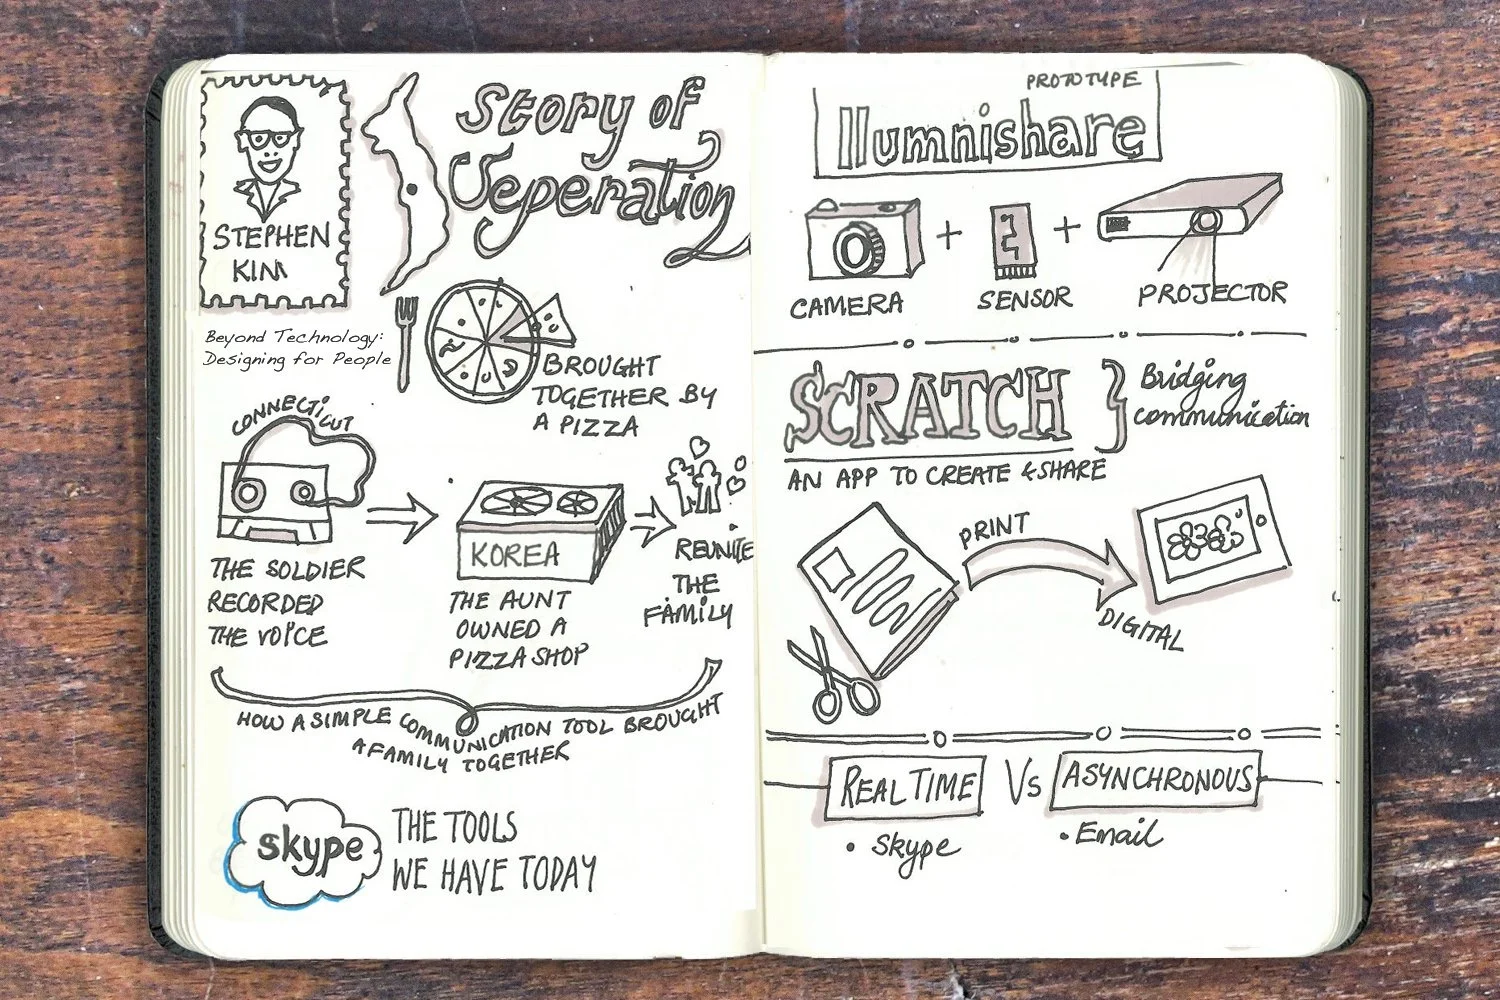 STEPHEN
KIM
Beyond Technology:
Designing for People
Story of
Seperation
BROUGHT
TOGETHER BY
A PIZZA
CONNECTICUT
THE SOLDIER
RECORDED
THE VOICE
KOREA
THE AUNT
OWNED A
PIZZA SHOP
REUNITE
THE
FAMILY
HOW A SIMPLE COMMUNICATION TOOL BROUGHT
A FAMILY TOGETHER
skype
THE TOOLS
WE HAVE TODAY
PROTOTYPE
Ilumnishare
CAMERA
+
SENSOR
+
PROJECTOR
SCRATCH
} Bridging
communication
AN APP TO CREATE & SHARE
PRINT
DIGITAL
REAL TIME Vs ASYNCHRONOUS
• Skype
• Email